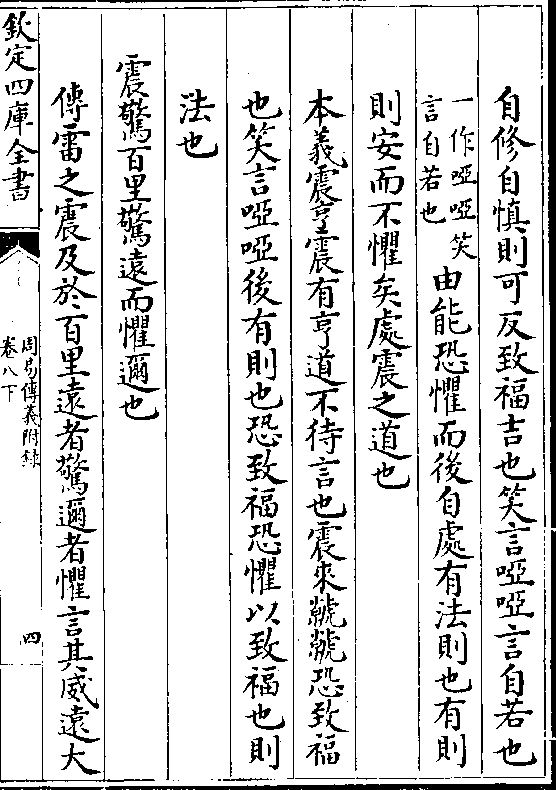 自修自慎則可反致福吉也笑言啞啞言自若也
一作啞啞笑
言自若也
由能恐懼而後自處有法則也有則
則安而不懼矣處震之道也
本義震亨震有亨道不待言也震來虩虩恐致福
也笑言啞啞後有則也恐致福恐懼以致福也則
法也
震驚百里驚遠而懼邇也
傳雷之震及於百里遠者驚邇者懼言其威遠大
欽定四庫全書
周易傳義附録
卷八下
四